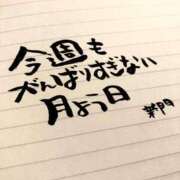 今週も
がんばりすぎない
月よう日